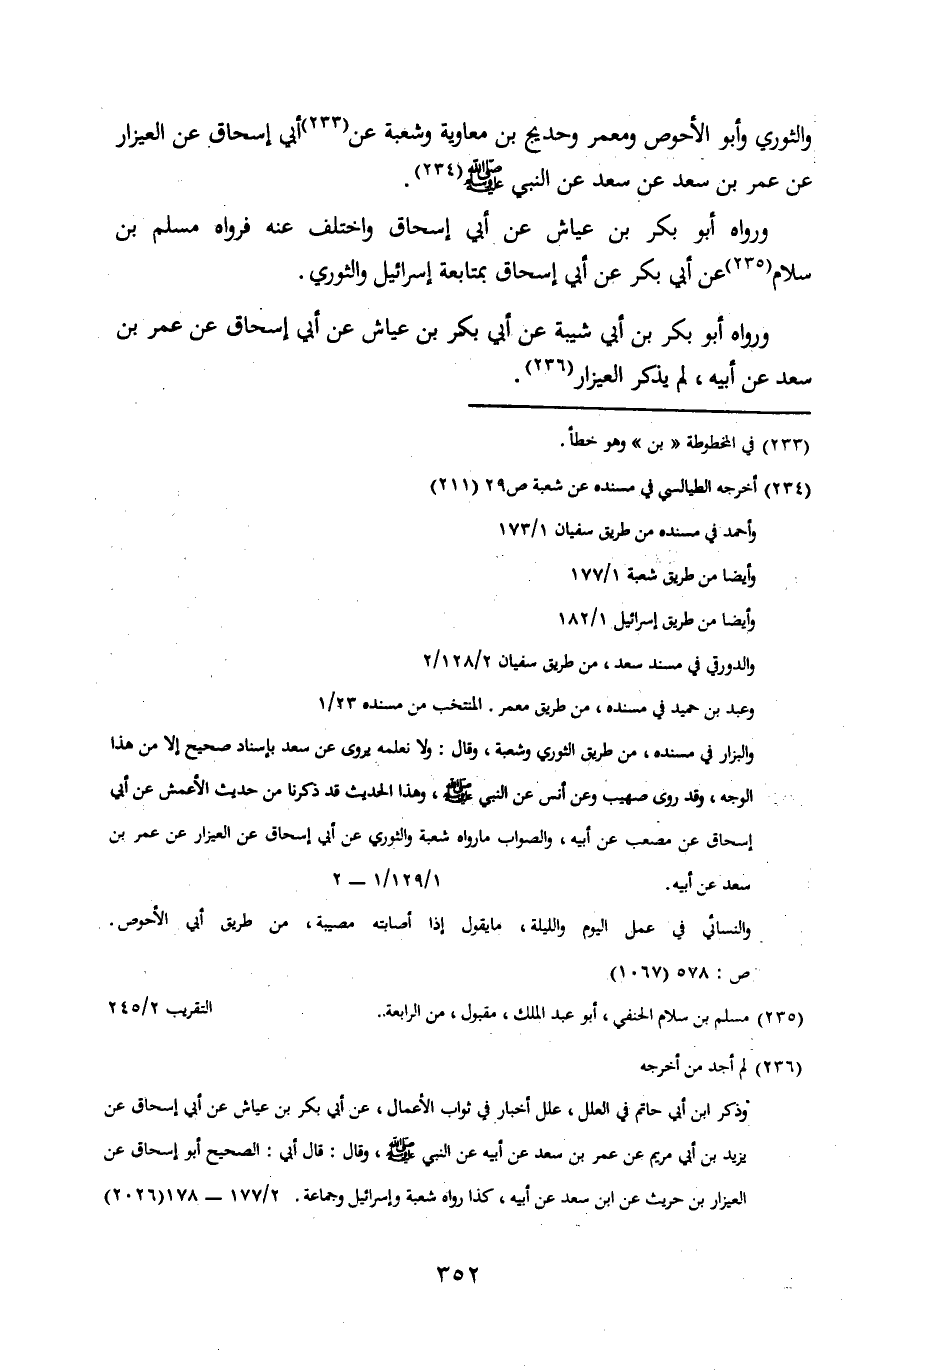 والثوري وأبو الأحوص ومعمر وحديج بن معاوية وشعبة عن(٢٣٣)أبي إسحاق عن العيزار
عن عمر بن سعد عن سعد عن النبي ﷺ(٢٣٤) .
ورواه أبو بكر بن عياش عن أبي إسحاق واختلف عنه فرواه مسلم بن
سلام(٢٣٥)عن أبي بكر عن أبي إسحاق بمتابعة إسرائيل والثوري .
ورواه أبو بكر بن أبي شيبة عن أبي بكر بن عياش عن أبي إسحاق عن عمر بن
سعد عن أبيه ، لم يذكر العيزار(٢٣٦) .
(٢٣٣) في المخطوطة « بن » وهو خطأ .
(٢٣٤) أخرجه الطيالسي في مسنده عن شعبة ص٢٩ (٢١١)
وأحمد في مسنده من طريق سفيان ١٧٣/١
وأيضا من طريق شعبة ١٧٧/١
وأيضا من طريق إسرائيل ١٨٢/١
والدورقي في مسند سعد ، من طريق سفيان ٢/١٢٨/٢
وعبد بن حميد في مسنده ، من طريق معمر . المنتخب من مسنده ١/٢٣
والبزار في مسنده ، من طريق الثوري وشعبة ، وقال : ولا نعلمه يروى عن سعد بإسناد صحيح إلا من هذا
الوجه ، وقد روى صهيب وعن أنس عن النبي ﷺ ، وهذا الحديث قد ذكرنا من حديث الأعمش عن أبي
إسحاق عن مصعب عن أبيه ، والصواب مارواه شعبة والثوري عن أبي إسحاق عن العيزار عن عمر بن
سعد عن أبيه. ١/١٢٩/١ — ٢
والنسائي في عمل اليوم والليلة، مايقول إذا أصابته مصيبة، من طريق أبي الأحوص.
ص : ٥٧٨ (١٠٦٧)
(٢٣٥) مسلم بن سلام الحنفي ، أبو عبد الملك ، مقبول ، من الرابعة.. التقريب ٢٤٥/٢
(٢٣٦) لم أجد من أخرجه
وذكر ابن أبي حاتم في العلل ، علل أخبار في ثواب الأعمال ، عن أبي بكر بن عياش عن أبي إسحاق عن
يزيد بن أبي مريم عن عمر بن سعد عن أبيه عن النبي ﷺ ، وقال : قال أبي : الصحيح أبو إسحاق عن
العيزار بن حريث عن ابن سعد عن أبيه ، كذا رواه شعبة وإسرائيل وجماعة . ١٧٧/٢ — ١٧٨(٢٠٢٦)
٣٥٢